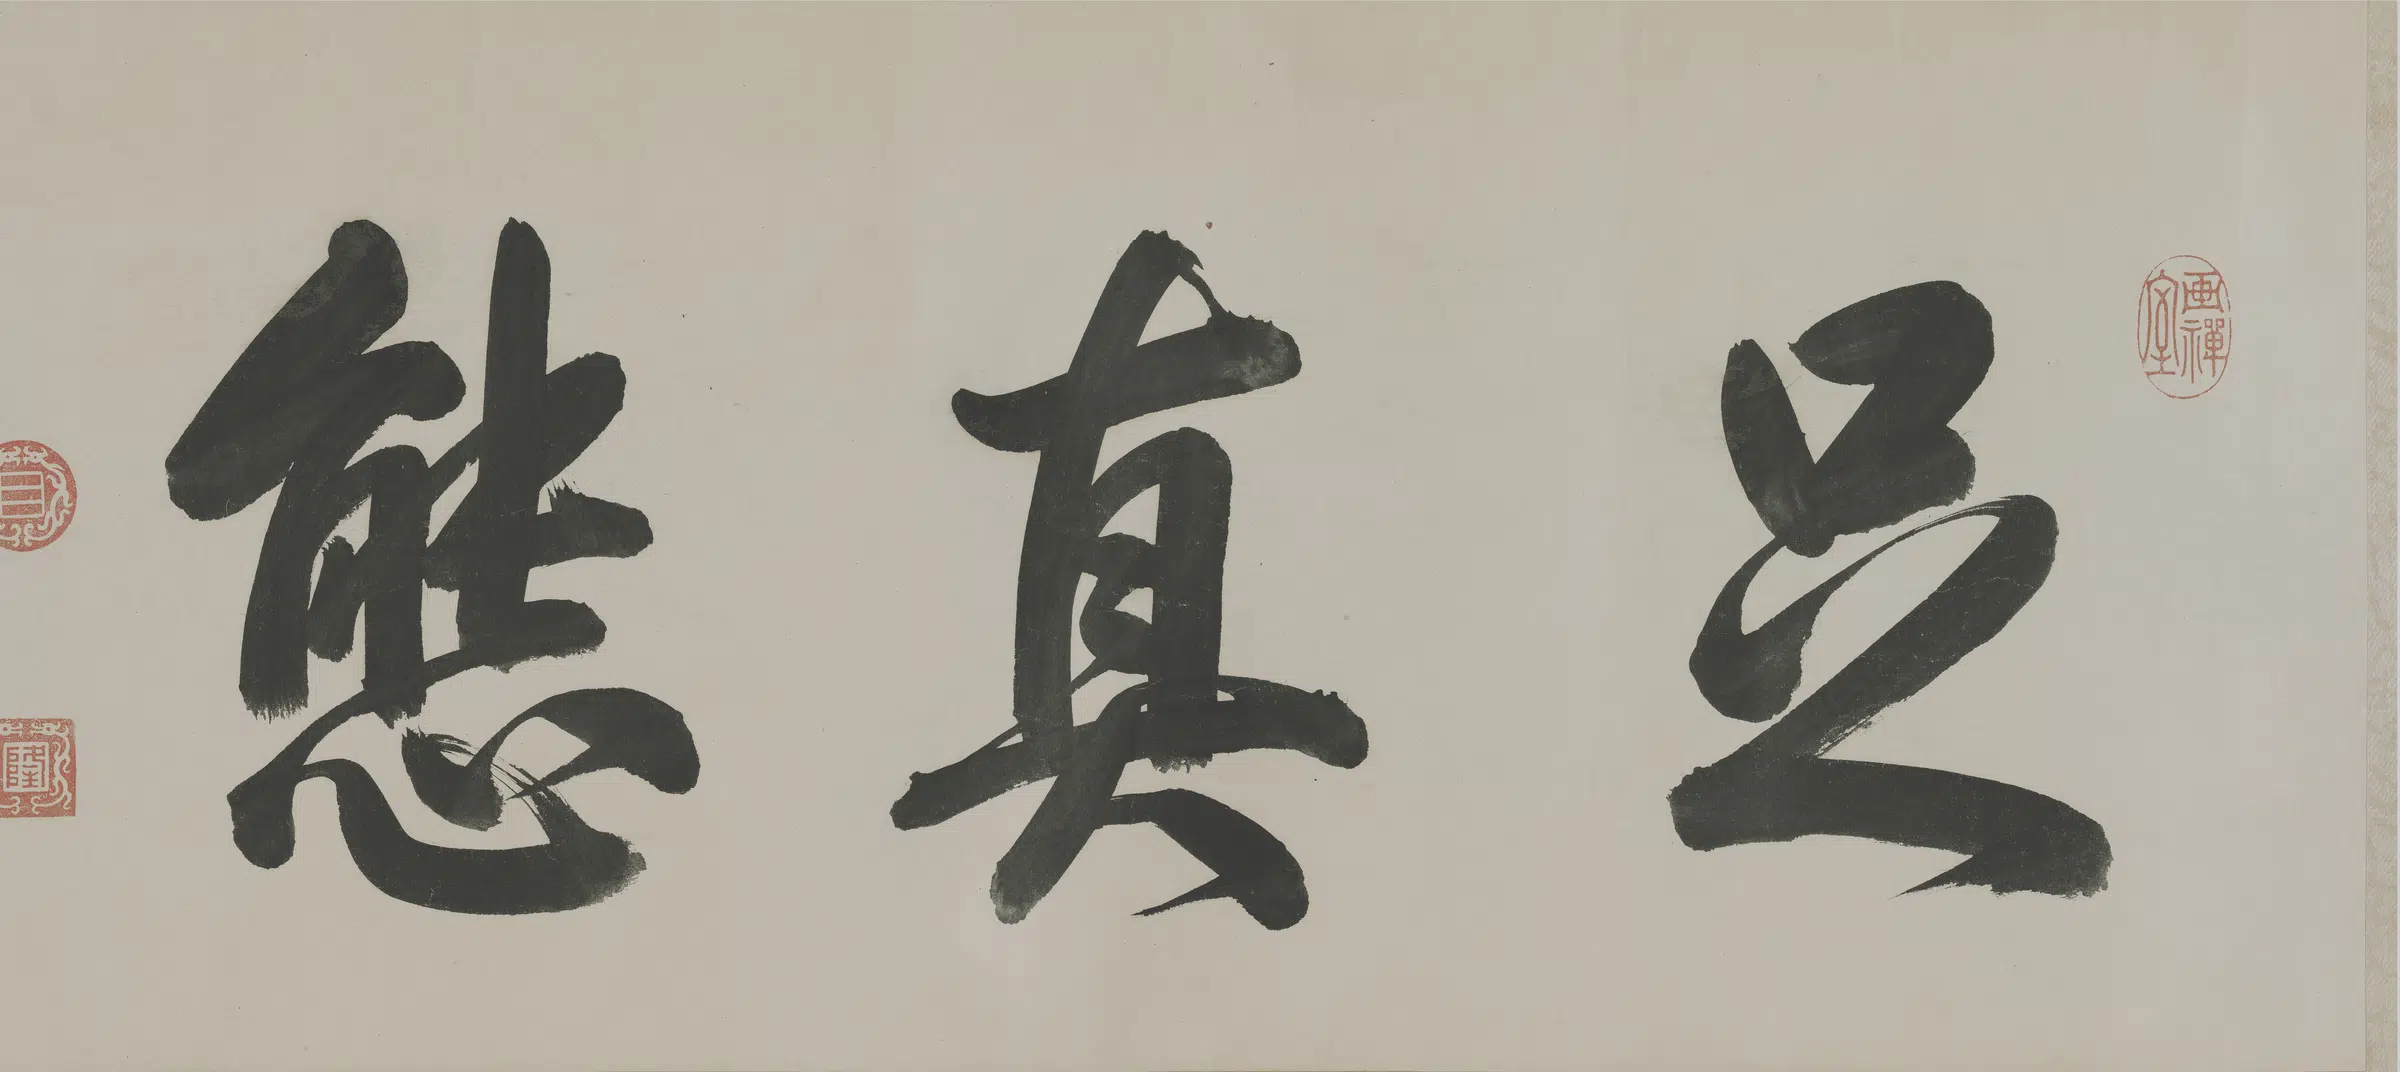 画禪室
足真態